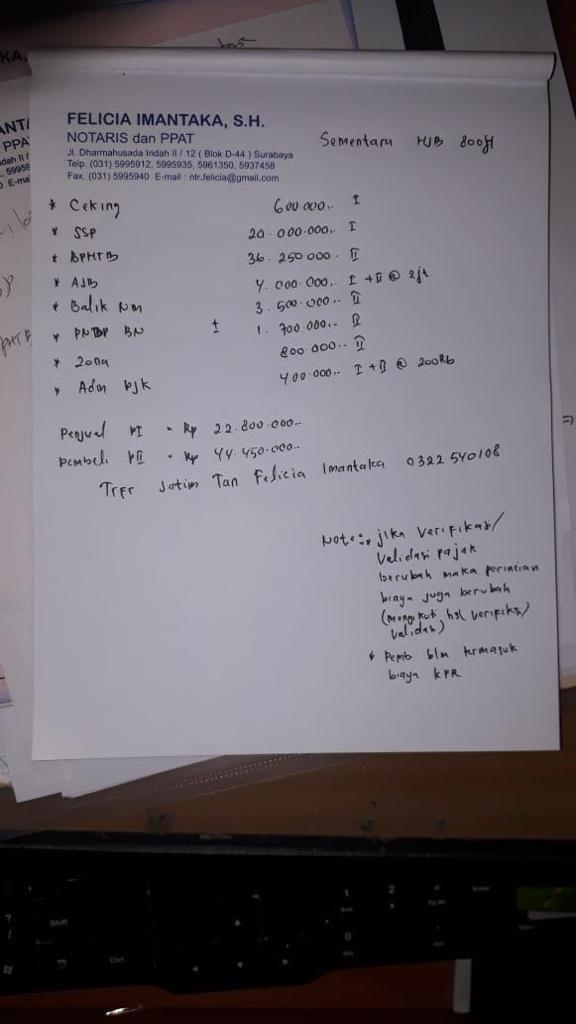 FELICIA IMANTAKA, S.H.
NOTARIS dan PPAT
Jl. Dharmahusada Indah II / 12 ( Blok D-44 ) Surabaya
Telp. (031) 5995912, 5995935, 5961350, 5937458
Fax. (031) 5995940 E-mail : ntr.felicia@gmail.com
Sementara HJB 800jt
* Ceking 600.000.- I
* SSP 20.000.000.- I
* BPHTB 36.250.000.- II
* AJB 4.000.000.- I + II @ 2jt
* Balik Nm 3.500.000.- II
* PNBP BN ± 1.700.000.- II
* Zona 800.000.- II
* Adm Pjk 400.000.- I + II @ 200Rb
Penjual PI = Rp 22.800.000.-
Pembeli PII = Rp 44.450.000.-
Trfr Jatim Tan Felicia Imantaka 0322540108
Note: * jika Verifikasi/
Validasi pajak
berubah maka perincian
biaya juga berubah
(mengikuti hsl verifikasi/
validasi)
* Pemb blm termasuk
biaya KPR